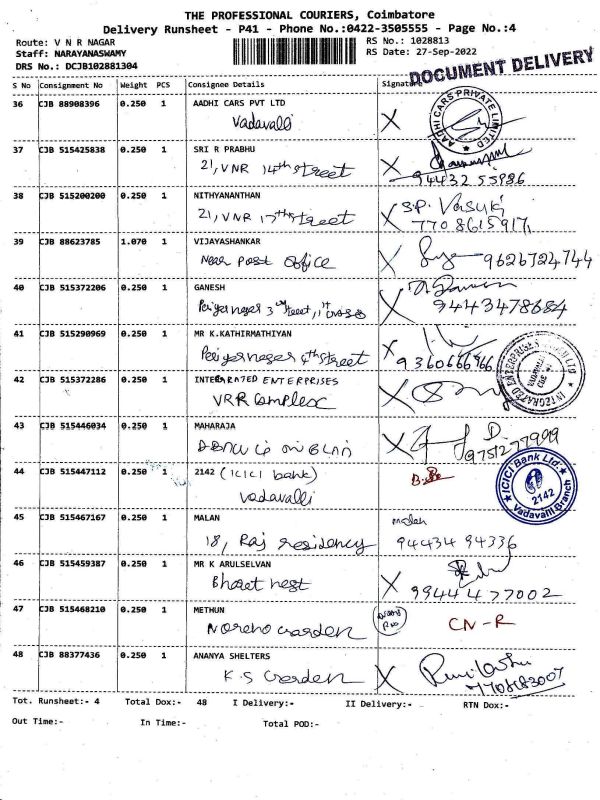 THE PROFESSIONAL COURIERS, Coimbatore
Delivery Runsheet - P41 - Phone No.:0422-3505555 - Page No.:4
Route: V N R NAGAR
RS No.: 1028813
Staff: NARAYANASWAMY
RS Date: 27-Sep-2022
DRS No.: DCJB102881304
DOCUMENT DELIVERY
S No Consignment No Weight PCS Consignee Details Signature
36 CJB 88908396 0.250 1 AADHI CARS PVT LTD
Vadavalli
AADHI CARS PRIVATE LIMITED
37 CJB 515425838 0.250 1 SRI R PRABHU
21, VNR 14th street
94432 55986
38 CJB 515200200 0.250 1 NITHYANANTHAN
21, VNR 17th street
S.P. Vasuki
7708615917
39 CJB 88623785 1.070 1 VIJAYASHANKAR
Near Post Office
9626724744
40 CJB 515372206 0.250 1 GANESH
Periyar nagar 3rd street, 1st cross
9443478684
41 CJB 515290969 0.250 1 MR K.KATHIRMATHIYAN
Periyar nagar 4th street
9360666966
42 CJB 515372286 0.250 1 INTEGRATED ENTERPRISES
VRR Complex
43 CJB 515446034 0.250 1 MAHARAJA
9751277999
44 CJB 515447112 0.250 1 2142 (ICICI bank)
Vadavalli
ICICI Bank Ltd.
2142
Vadavalli Branch
45 CJB 515467167 0.250 1 MALAN
18, Raj residency
malan
94434 94336
46 CJB 515459387 0.250 1 MR K ARULSELVAN
Bharat nest
99444 77002
47 CJB 515468210 0.250 1 METHUN
CN-R
48 CJB 88377436 0.250 1 ANANYA SHELTERS
K.S Garden
7708683007
Tot. Runsheet:- 4 Total Dox:- 48 I Delivery:- II Delivery:- RTN Dox:-
Out Time:- In Time:- Total POD:-